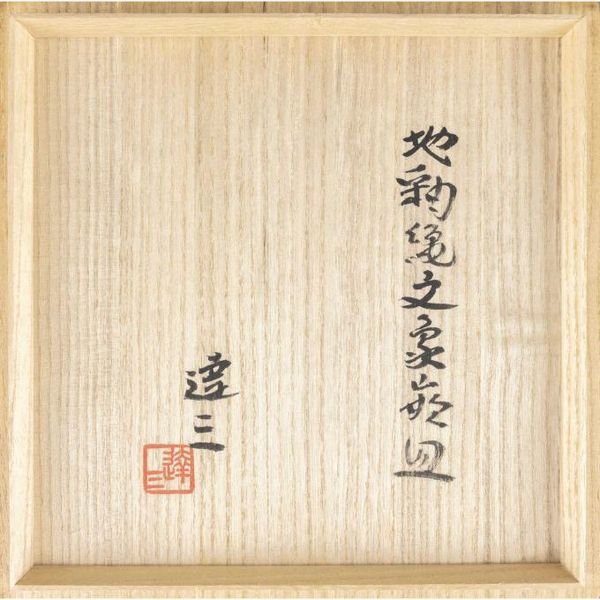 地釉縄文象嵌皿
達三
達三